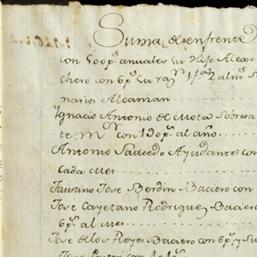 Suma del enfrente
con 500 p.s anuales su hijo Alexo
chero con 6 p.s su ra.n 1/2 alm.s S
narios Alcanzan
Ignacio Antonio de Mota Sobresa
te M.r con 150 p.s al año
Antonio Saucedo Ayudante con
cada mes
Faustino Jose Berdin Baciero con
Jose Cayetano Rodriguez Baciero
6 p.s al mes
Jose de los Reyes Baciero con 6 p.s y su